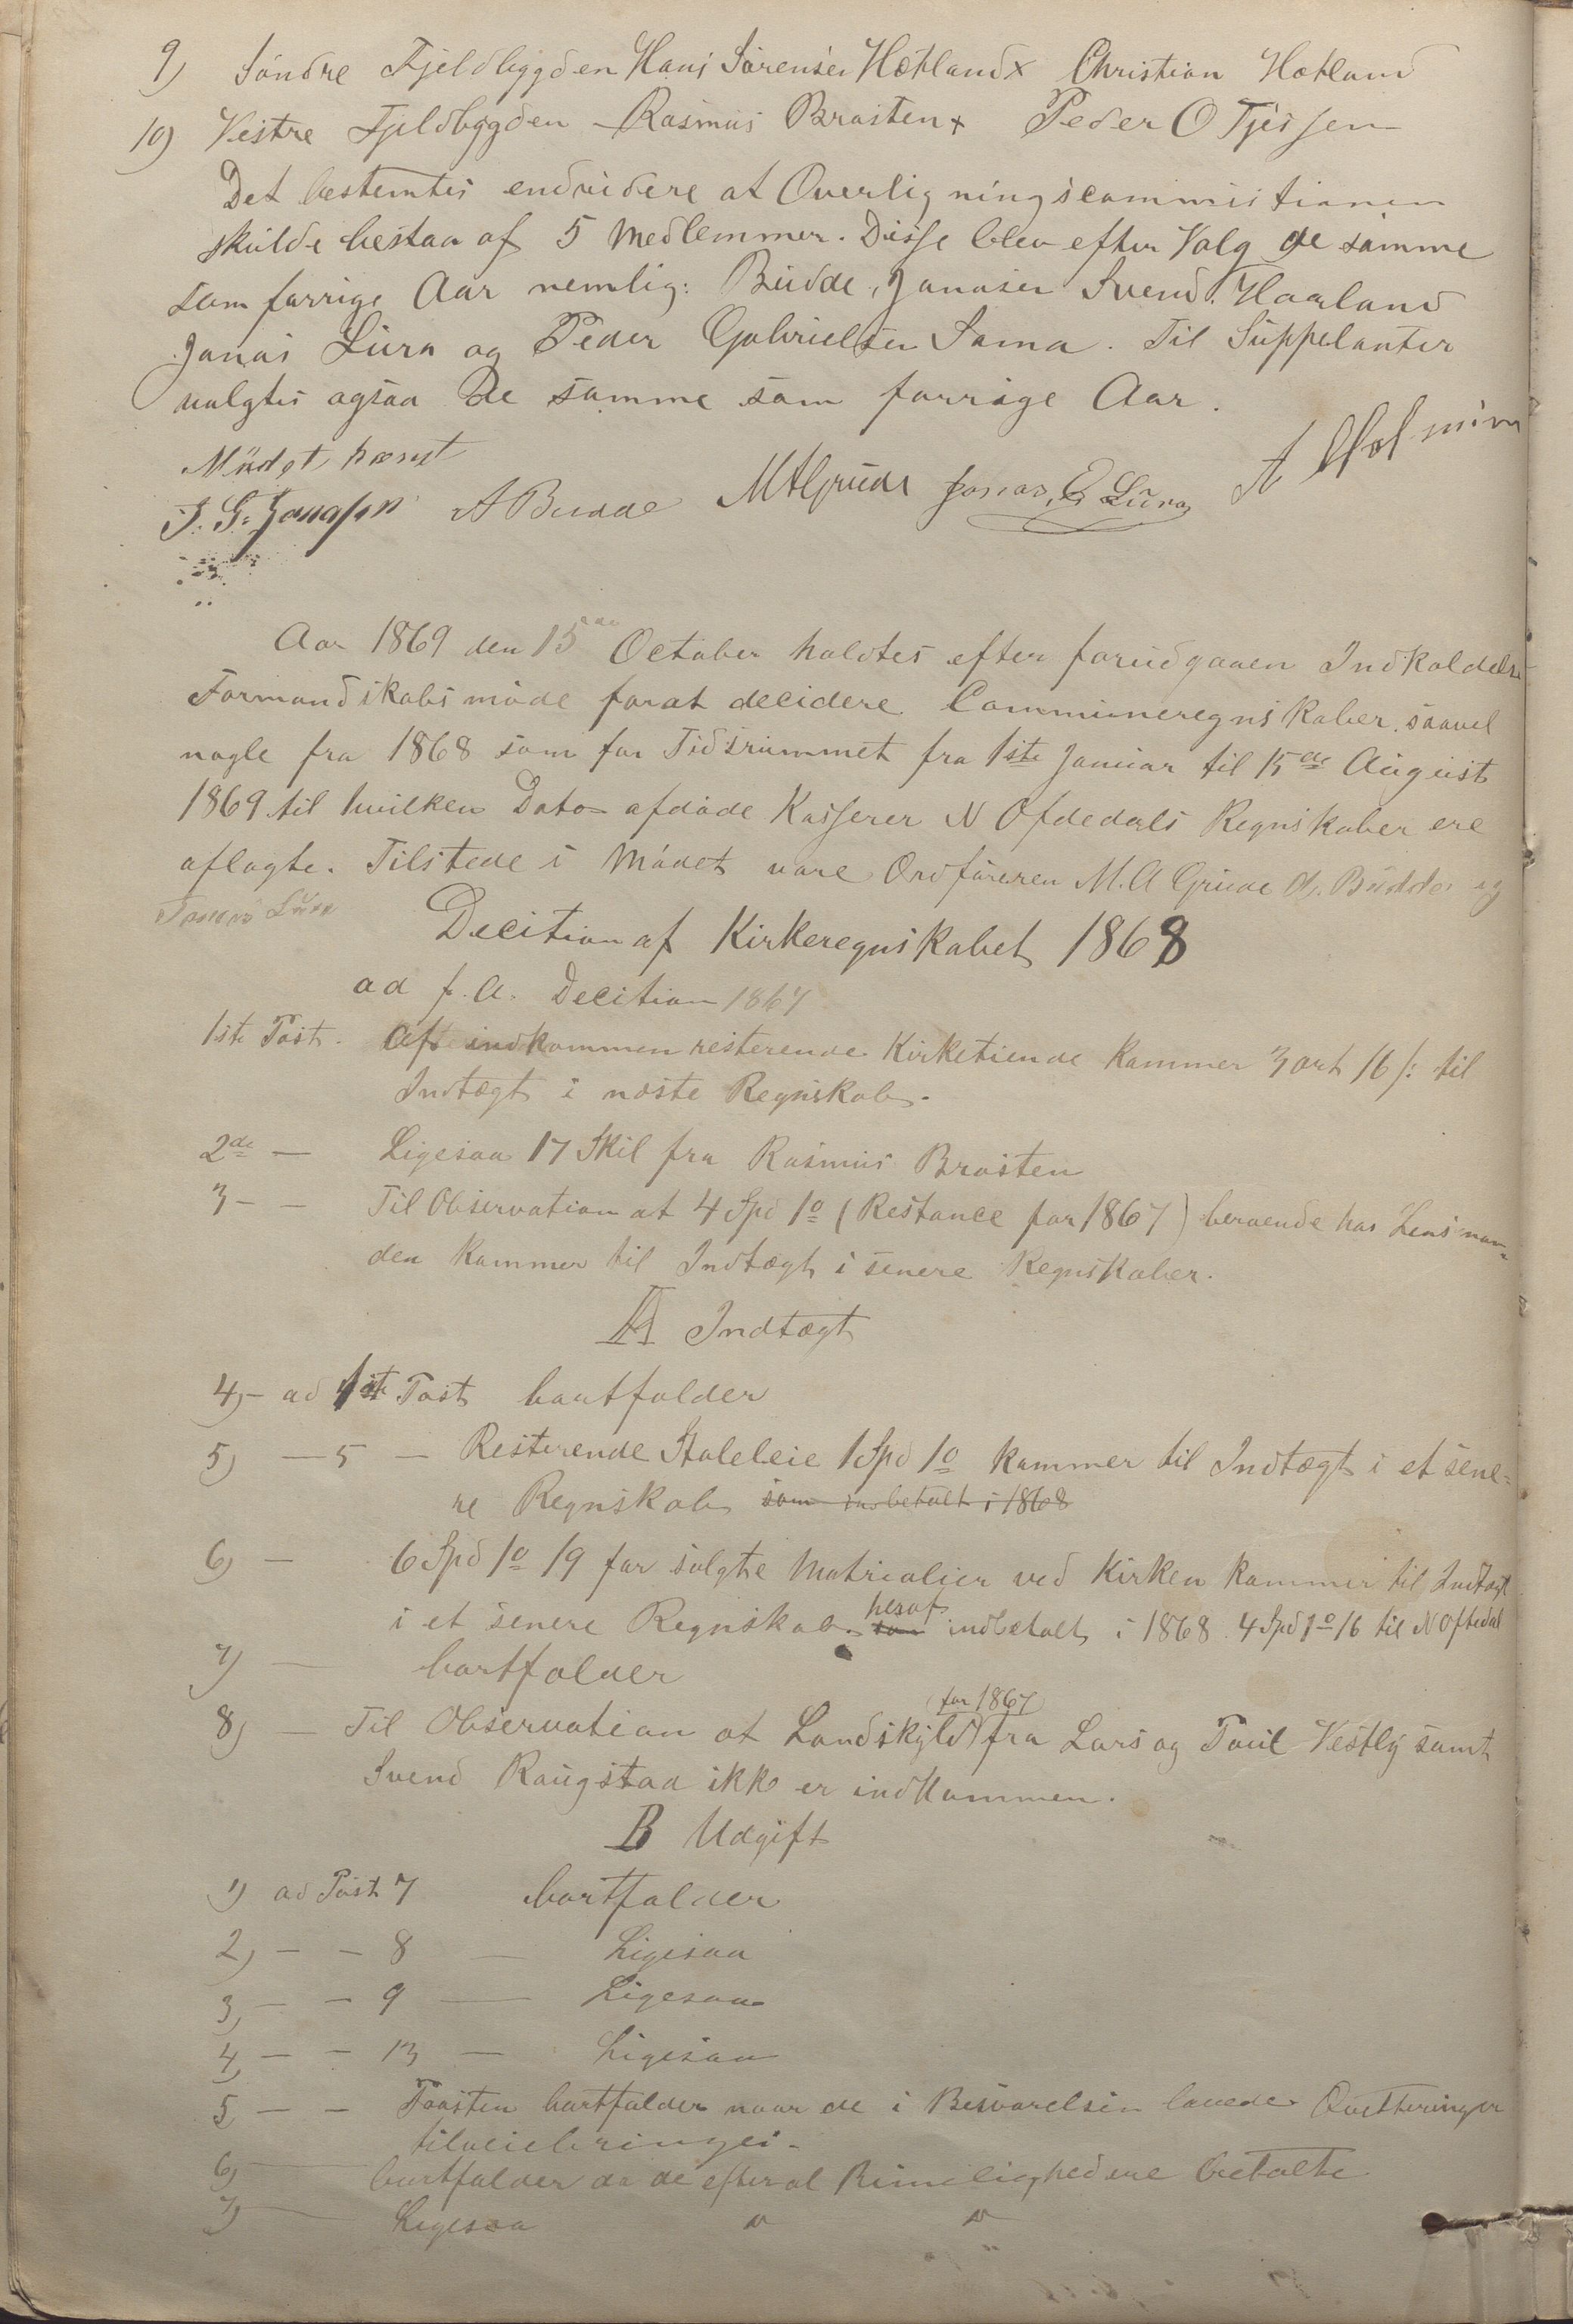 9) Søndre Fjeldbygden Hans Sørensen Hætland x Christian Hætland
10) Vestre Fjeldbygden Rasmus Brasten x Peder O Tjessem
Det bestemtes endvidere at Overligningscommistionen
skulde bestaa af 5 Medlemmer. Disse blev efter Valg de samme
som forrige Aar nemlig: Budde, Jonasen Svend Haaland
Jonas Lura og Peder Gabrielsen Soma. Til Suppelanter
valgtes ogsaa De samme som forrige Aar.
Mødet hævet
J. G. Jonassen A Budde M A Grude Jonas E Lura
Aar 1869 den 15de October holdtes efter forudgaaen Indkaldelse
Formandskabsmøde forat decidere Communeregnskaber, saavel
nogle fra 1868 som for Tidsrummet fra 1ste Januar til 15de August
1869 til hvilken Dato afdøde Kasserer N Ofdedals Regnskaber ere
aflagte. Tilstede i Mødet vare Ordføreren M. A Grude A. Budde og
Jonas Lura
Decition af Kirkeregnskabet 1868
ad f. A. Decition 1867
1ste Post. Af indkommen resterende Kirketiende kommer 3 ort 16 s: til
Indtægt i næste Regnskab.
2de — Ligesaa 17 Skil fra Rasmus Brasten
3 — — Til Observation at 4 Spd 1o (Restance for 1867) beroende hos Lensman-
den kommer til Indtægt i senere Regnskaber.
A Indtægt
4) — ad 1ste Post bortfalder
5) — 5 — Resterende Stoleleie 1 Spd 1o kommer til Indtægt i et sene-
re Regnskab som indbetalt i 1868
6) — 6 Spd 1o 19 for solgte Matrialier ved Kirken kommer til Indtægt
i et senere Regnskab. heraf indbetalt i 1868 4 Spd 1o 16 til N Oftedal
7) — bortfalder
8) — Til Observation at Landskyld (for 1867) fra Lars og Poul Vestly samt
Svend Raugstad ikke er indkommen.
B Udgift
1) ad Post 7 bortfalder
2) — — 8 — Ligesaa
3) — — 9 — Ligesaa
4) — — 13 — Ligesaa
5 — — Posten bortfalder naar de i Besvarelsen lovede Qvitteringer
tilveiebringes.
6) — bortfalder da de efter al Rimelighed ere betalte
7) — Ligesaa " "